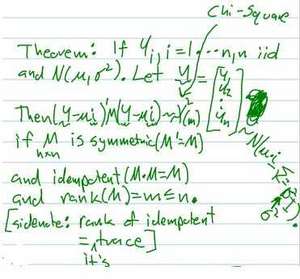 Chi-Square
Theorem: If Yi, i=1...n, n iid
and N(μ,σ²). Let Y = [Y1 Y2 ⋮ Yn] ~ N(μi, Σ
σ²I
Then (Y-μi)'M(Y-μi) ~ χ²(m)
if M n×n is symmetric (M'=M)
and idempotent (M·M=M)
and rank(M)=m≤n.
[sidenote: rank of idempotent
= trace]
it's